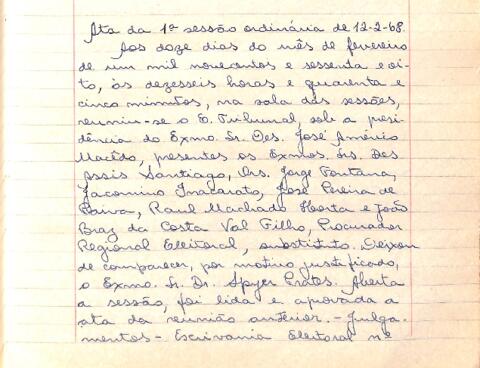 Ata da 1ª sessão ordinária de 12-2-68.
Aos doze dias do mês de fevereiro
de um mil novecentos e sessenta e oi-
to, às dezesseis horas e quarenta e
cinco minutos, na sala das sessões,
reuniu-se o E. Tribunal, sob a presi-
dência do Exmo. Sr. Des. José Américo
Macêdo, presentes os Exmos. Srs. Des
Assis Santiago, Drs. Jorge Fontana,
Jacomino Inacarato, José Pereira de
Paiva, Raul Machado Horta e João
Braz da Costa Val Filho, Procurador
Regional Eleitoral, substituto. Deixou
de comparecer, por motivo justificado,
o Exmo. Sr. Dr. Spyer Prates. Aberta
a sessão, foi lida e aprovada a
ata da reunião anterior. - Julga-
mentos - Escrivania Eleitoral nº